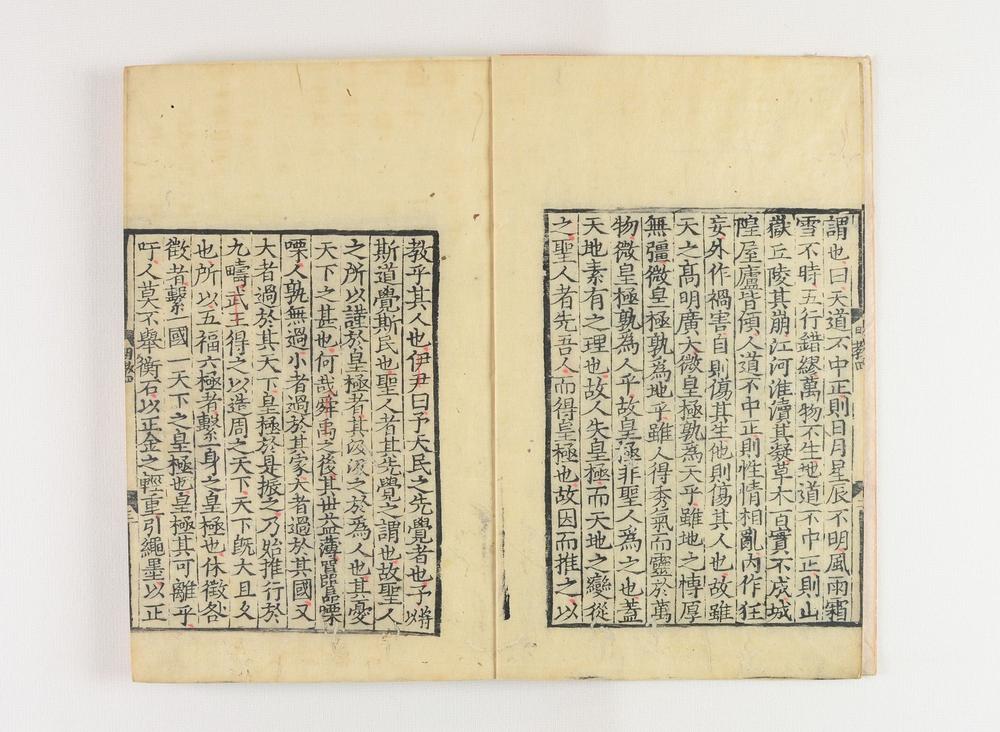 謂也曰天道不中正則日月星辰不明風雨霜
雪不時五行錯繆萬物不生地道不中正則山
嶽丘陵其崩江河淮瀆其凝草木百實不成城
隍屋廬皆傾人道不中正則性情相亂內作狂
妄外作禍害自則傷其生他則傷其人也故雖
天之髙明廣大微皇極孰為天乎雖地之慱厚
無彊微皇極孰為地乎雖人得秀氣而靈於萬
物微皇極孰為人乎故皇極非聖人為之也蓋
天地素有之理也故人失皇極而天地之變從
之聖人者先吾人而得皇極也故因而推之以
教乎其人也伊尹曰予天民之先覺者也予將以
斯道覺斯民也聖人者其先覺之謂也故聖人
之所以謹於皇極者其汲汲之於為人也其憂
天下之甚也何哉舜禹之後其世益薄嚚嚚嘌
嘌人孰無過小者過於其家大者過於其國又
大者過於其天下皇極於是振之乃始推行於
九疇武王得之以造周之天下天下旣大且久
也所以五福六極者繫一身之皇極也休徵咎
徵者繫一國一天下之皇極也皇極其可離乎
吁人莫不舉衡石以正金之輕重引繩墨以正